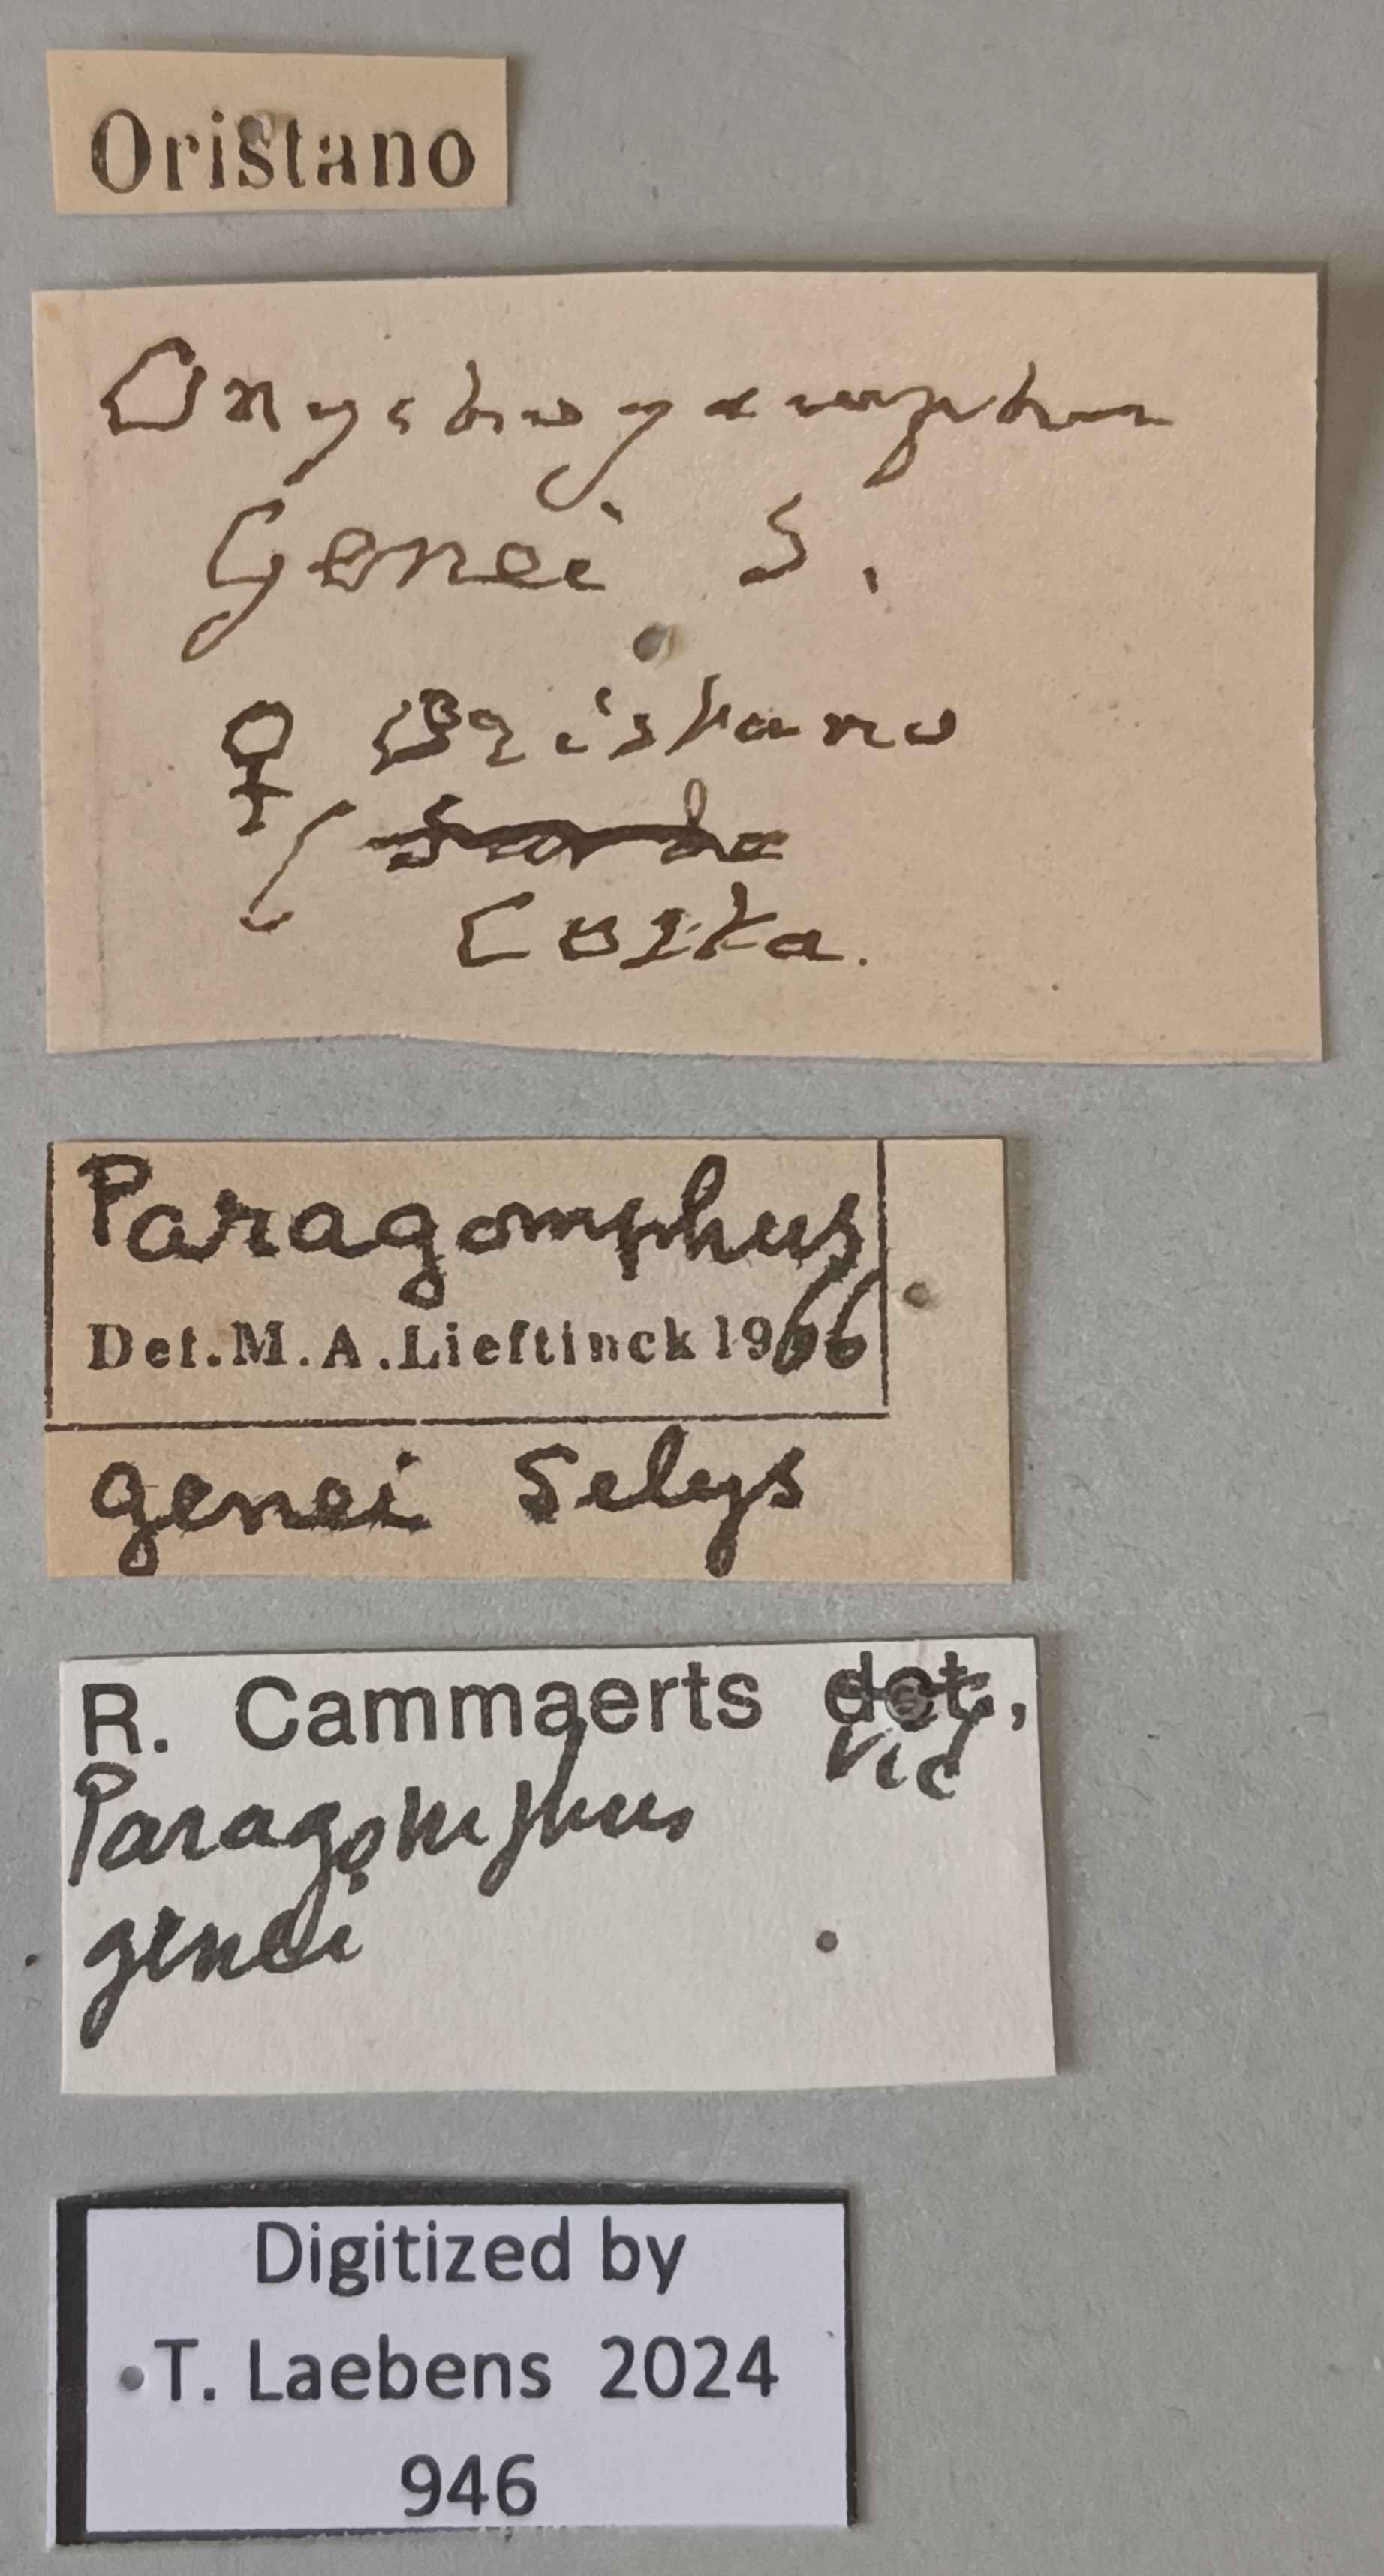 Oristano
Onychogomphus
Genei S.
♀ Oristano
Sarda
Costa.
Paragomphus
Det. M. A. Lieftinck 1966
genei Selys
R. Cammaerts det.,
vid
Paragomphus
genei
Digitized by
T. Laebens 2024
946